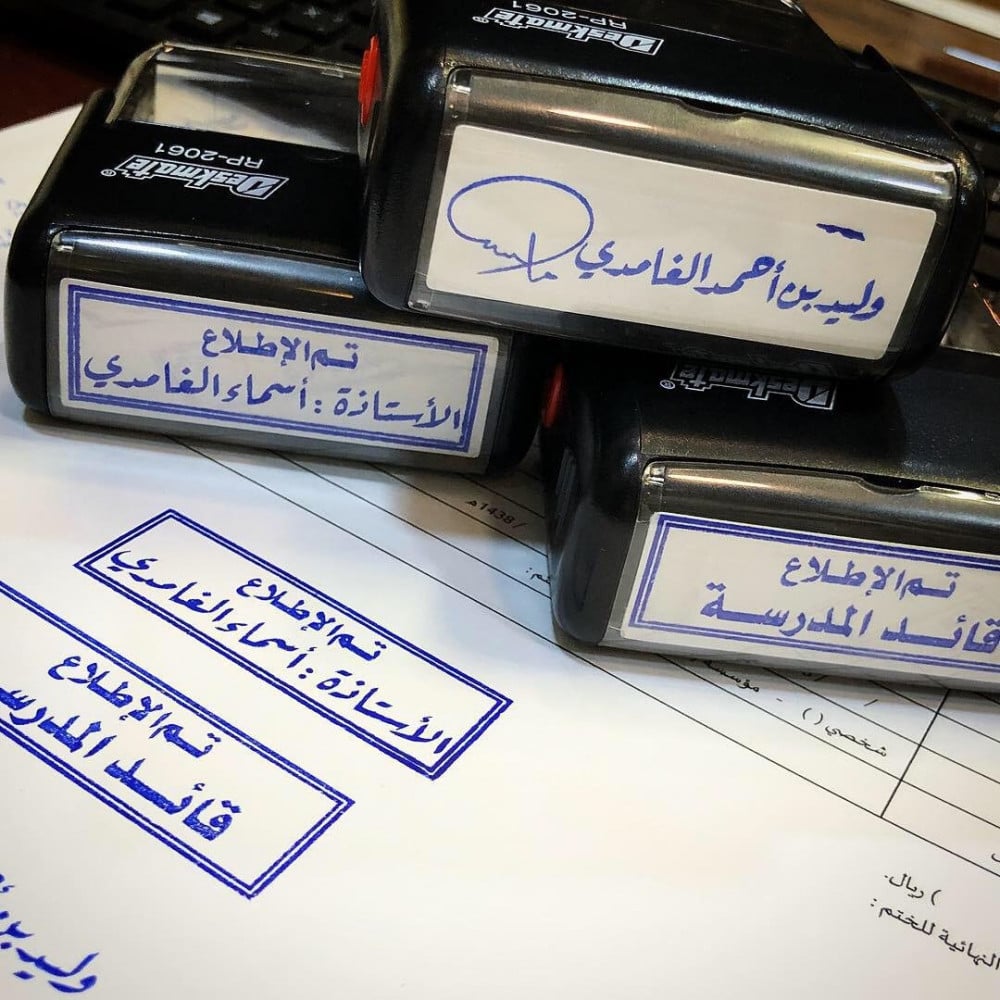 Deskmate®
RP-2061
وليد بن أحمد الغامدي
Deskmate®
RP-2061
تم الإطلاع
الأستاذة : أسماء الغامدي
Deskmate®
تم الإطلاع
قائد المدرسة
/1438هـ
تم الإطلاع
الأستاذة : أسماء الغامدي
تم الإطلاع
قائد المدرس
شخصي () - مؤسسة
) ريال.
النهائية للختم :
وليد بن